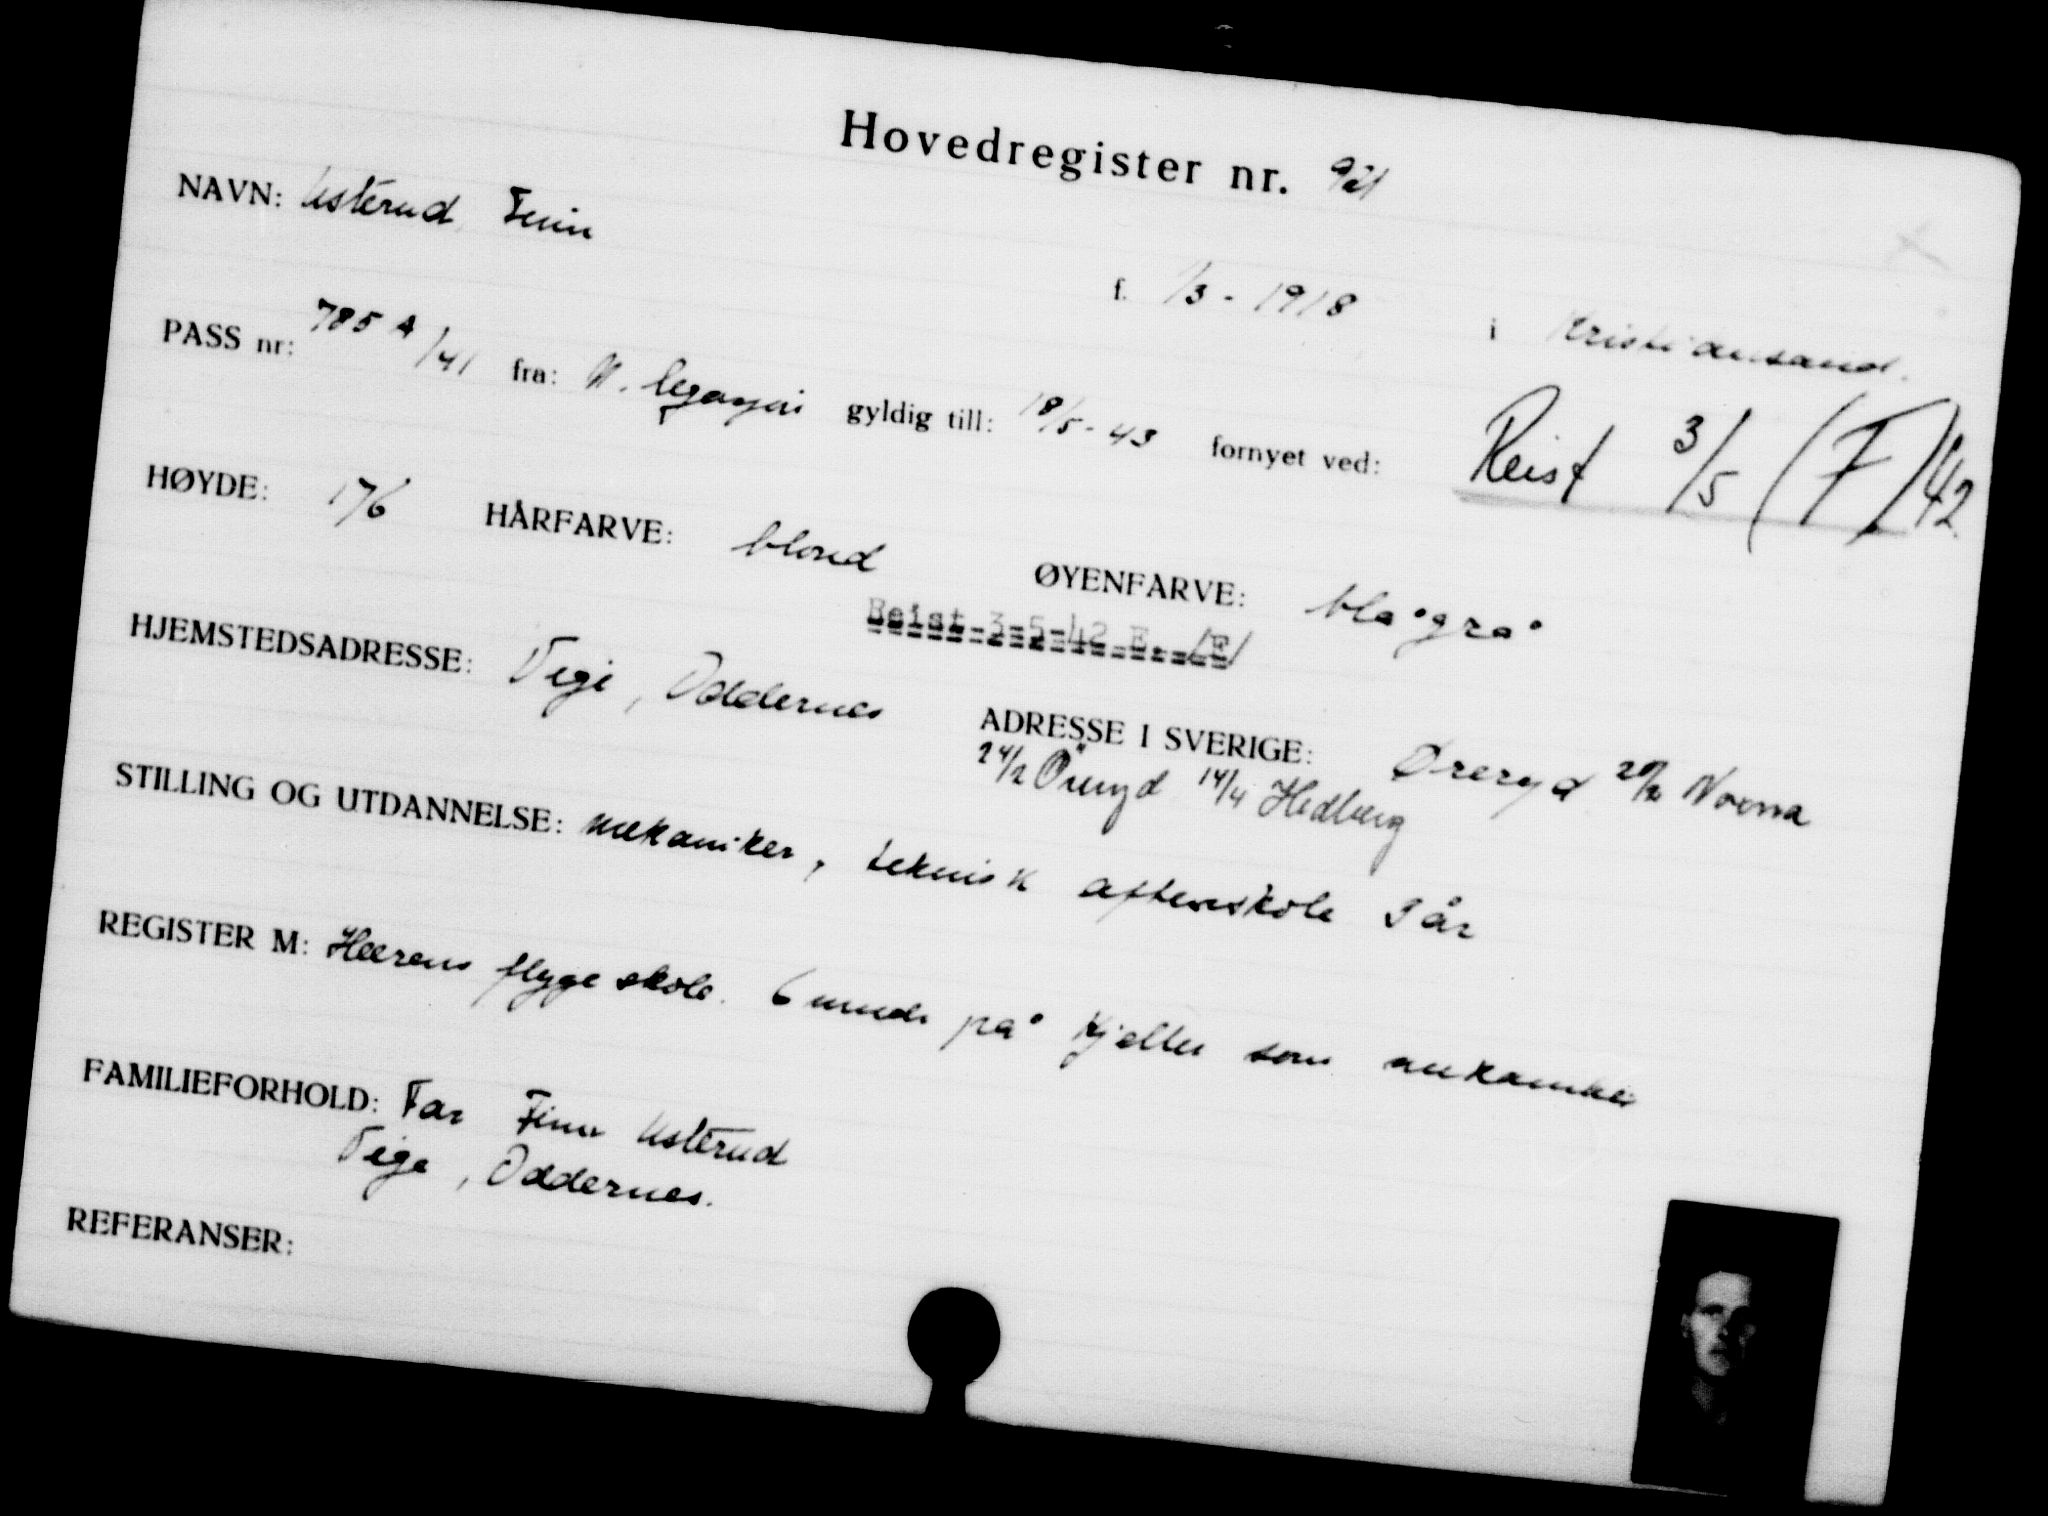 Hovedregister nr. 921
NAVN: Usterud, Finn
f. 1/3 - 1918 i Kristiansand.
PASS nr: 785 A/41 fra: N. legasjon gyldig till: 18/5-43 fornyet ved:
Reist 3/5 (F) 42
HØYDE: 176 HÅRFARVE: blond ØYENFARVE: blågrå
Reist 3-5-42 E. /F/
HJEMSTEDSADRESSE: Vege, Oddernes ADRESSE I SVERIGE: Øreryd Norna
24/2 Öreryd 14/4 Hedberg
STILLING OG UTDANNELSE: mekaniker, teknisk aftenskole 3 år
REGISTER M: Hærens flygeskole. 6 mnds på Kjeller som mekaniker
FAMILIEFORHOLD: Far Finn Usterud
Vege, Oddernes.
REFERANSER: